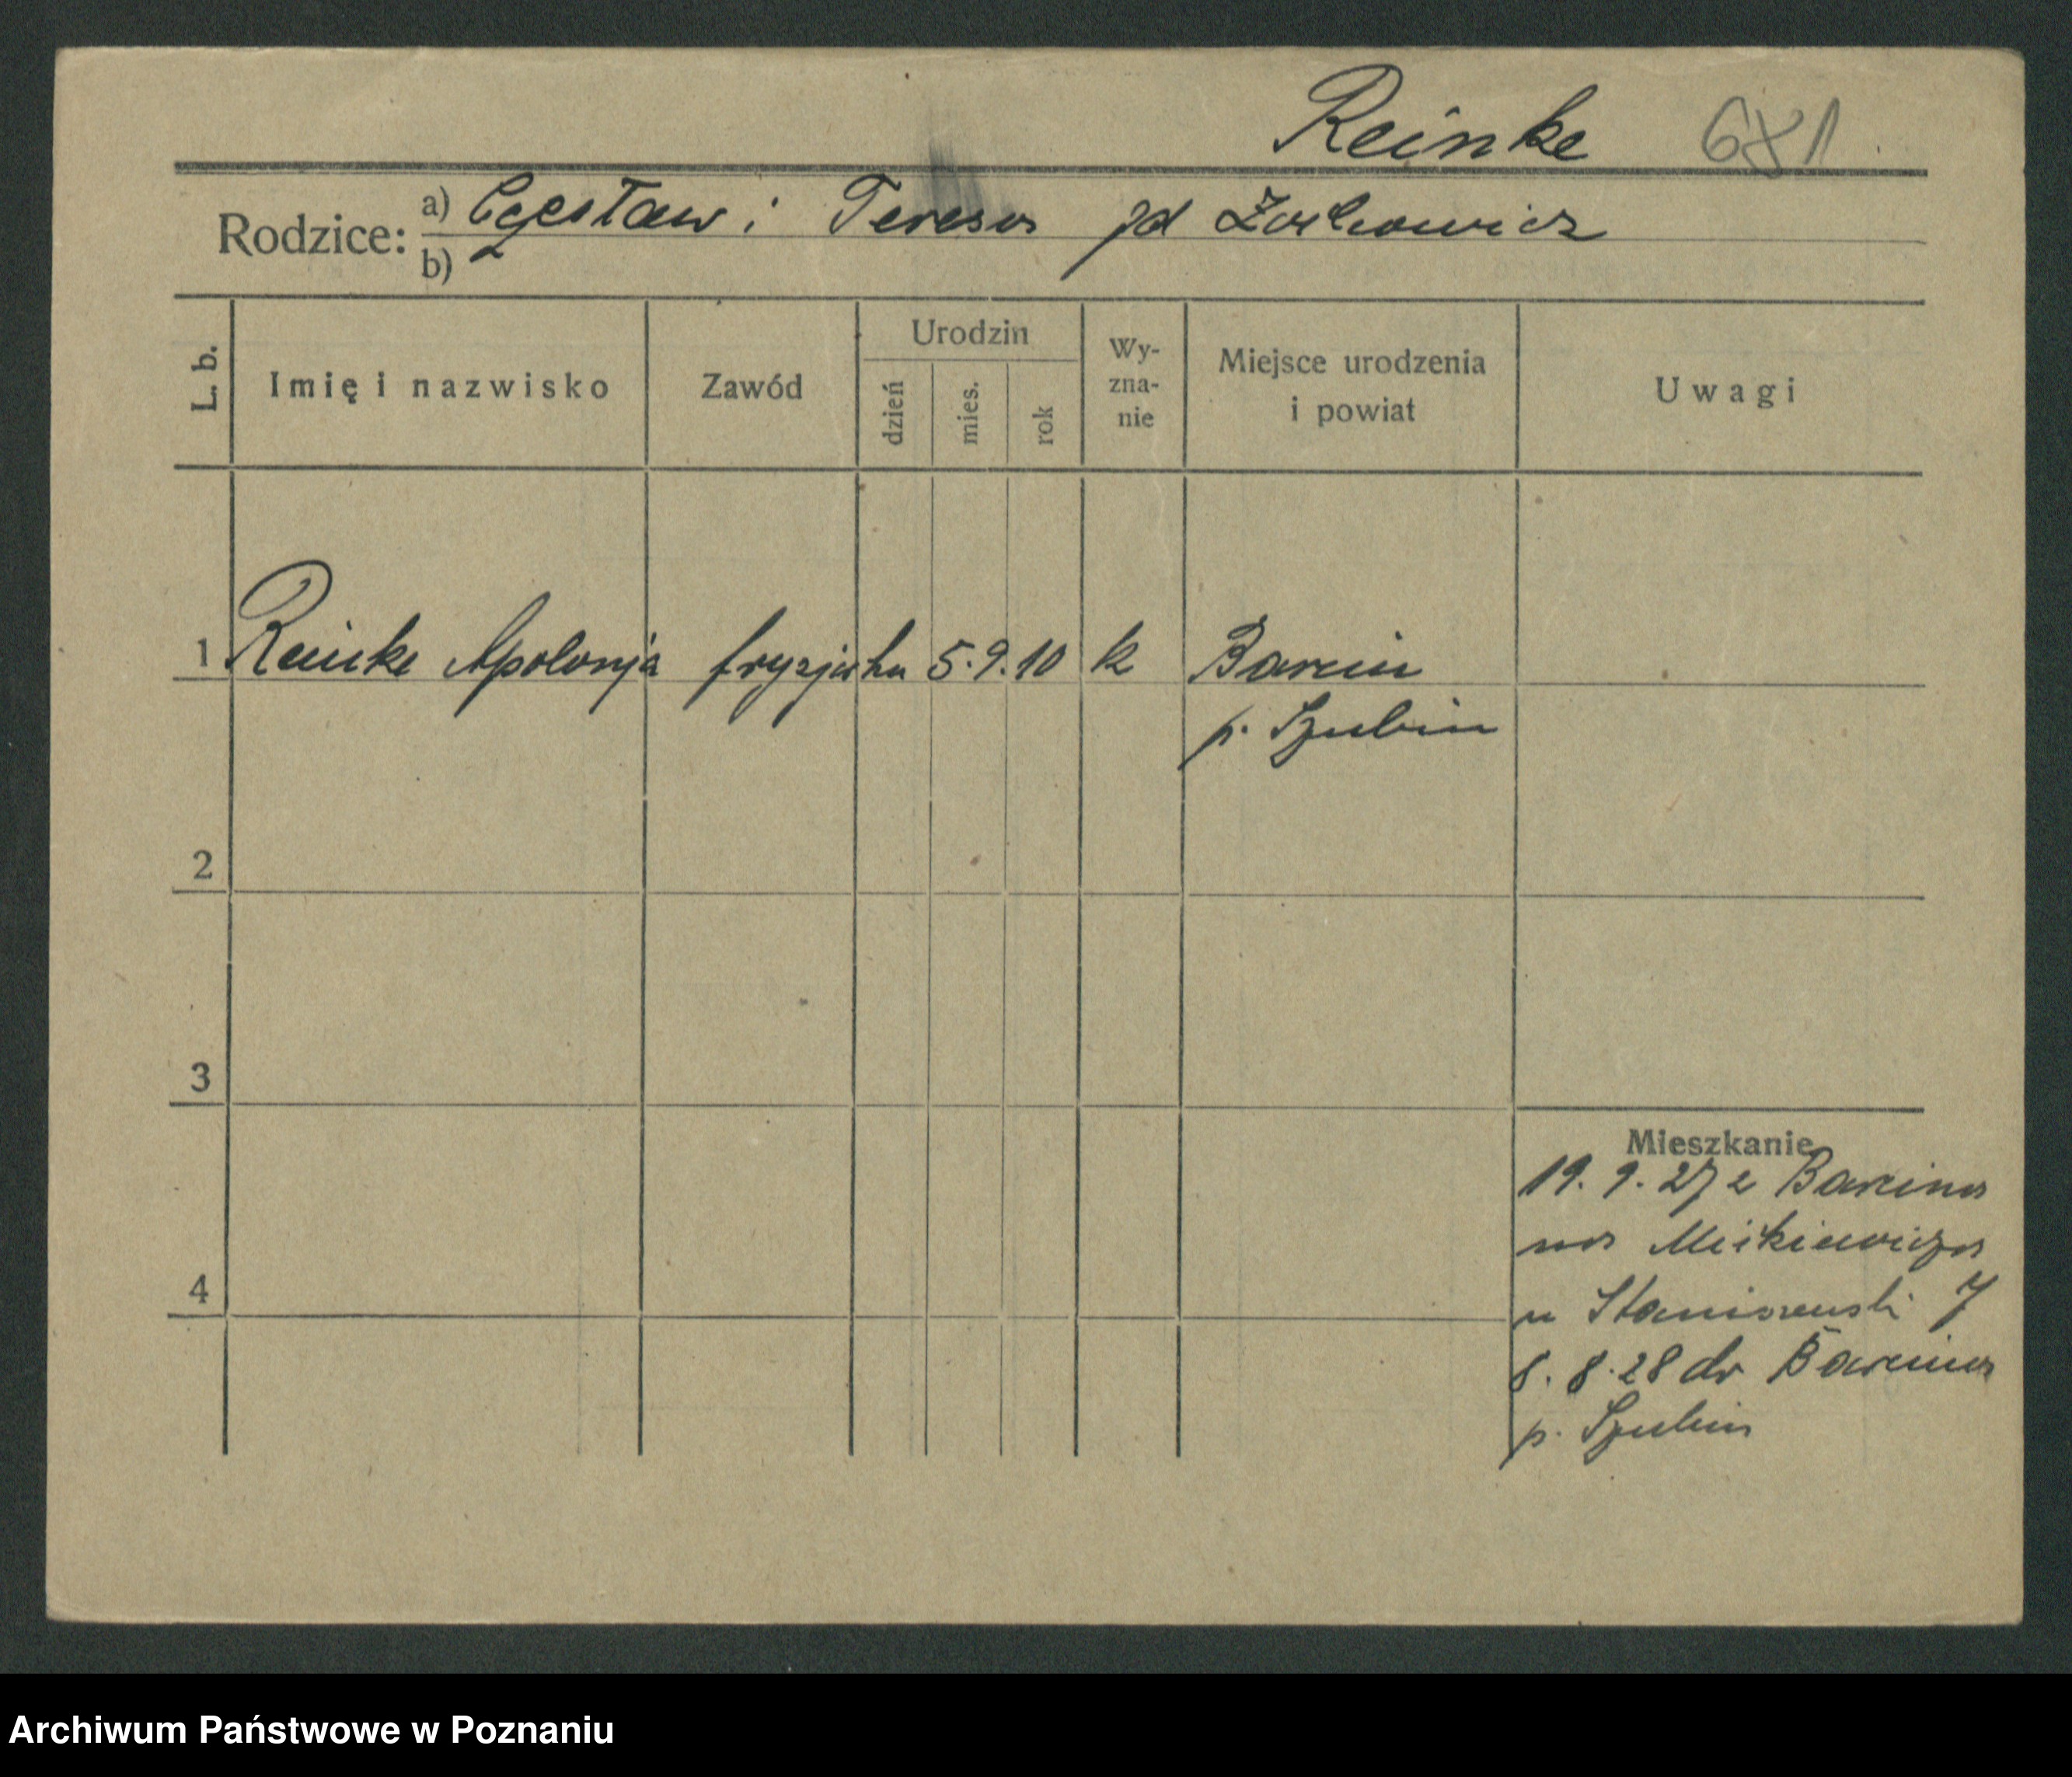 Reinke 681
Rodzice: a) Czesław i Teresa zd Żochowicz
b)
L. b. Imię i nazwisko Zawód Urodzin dzień mies. rok Wy-zna-nie Miejsce urodzenia i powiat Uwagi
1 Reinke Apolonja fryzjerka 5. 9. 10 k Barcin
p. Szubin
2
3
Mieszkanie
19. 9. 27 z Barcina
na Mickiewicza
4
u Staniszewski 7
8. 8. 28 do Barcina
p. Szubin
Archiwum Państwowe w Poznaniu